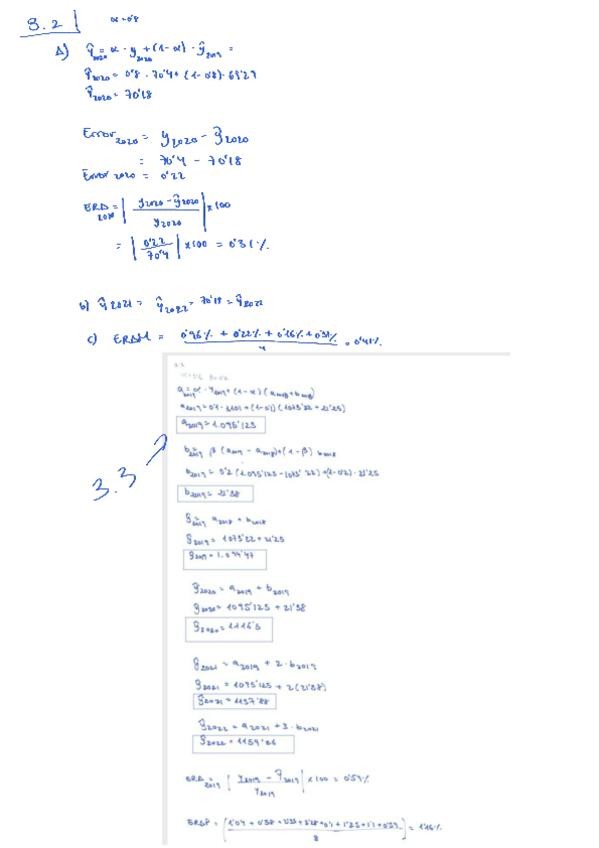 3.2 α=0'8
A) ŷ2020 = α · y2020 + (1-α) · ŷ2019 =
ŷ2020 = 0'8 · 70'4 + (1-0'8) · 69'29
ŷ2020 = 70'18
Error2020 = y2020 - ŷ2020
= 70'4 - 70'18
Error2020 = 0'22
ERA2020 = | y2020 - ŷ2020 / y2020 | x100
= | 0'22 / 70'4 | x100 = 0'31%
b) ŷ2021 = ŷ2022 = 70'18 = ŷ2022
c) ERAM = 0'96% + 0'22% + 0'16% + 0'31% / 4 = 0'41%
3.3
a2019 = α · y2019 + (1-α) (a2018 + b2018)
a2019 = 1.095'125
b2019 = β (a2019 - a2018) + (1-β) b2018
b2019 = 0'2 (1.095'125 - 1073'22) + (1-0'2) · 21'25
b2019 = 21'38
ŷ2019 = a2018 + b2018
ŷ2019 = 1073'22 + 21'25
ŷ2019 = 1.094'47
ŷ2020 = a2019 + b2019
ŷ2020 = 1095'125 + 21'38
ŷ2020 = 1116'5
ŷ2021 = a2019 + 2 · b2019
ŷ2021 = 1095'125 + 2 (21'38)
ŷ2021 = 1137'88
ŷ2022 = a2021 + 3 · b2021
ŷ2022 = 1159'26
ERA2019 = | y2019 - ŷ2019 / y2019 | x100 = 0'59%